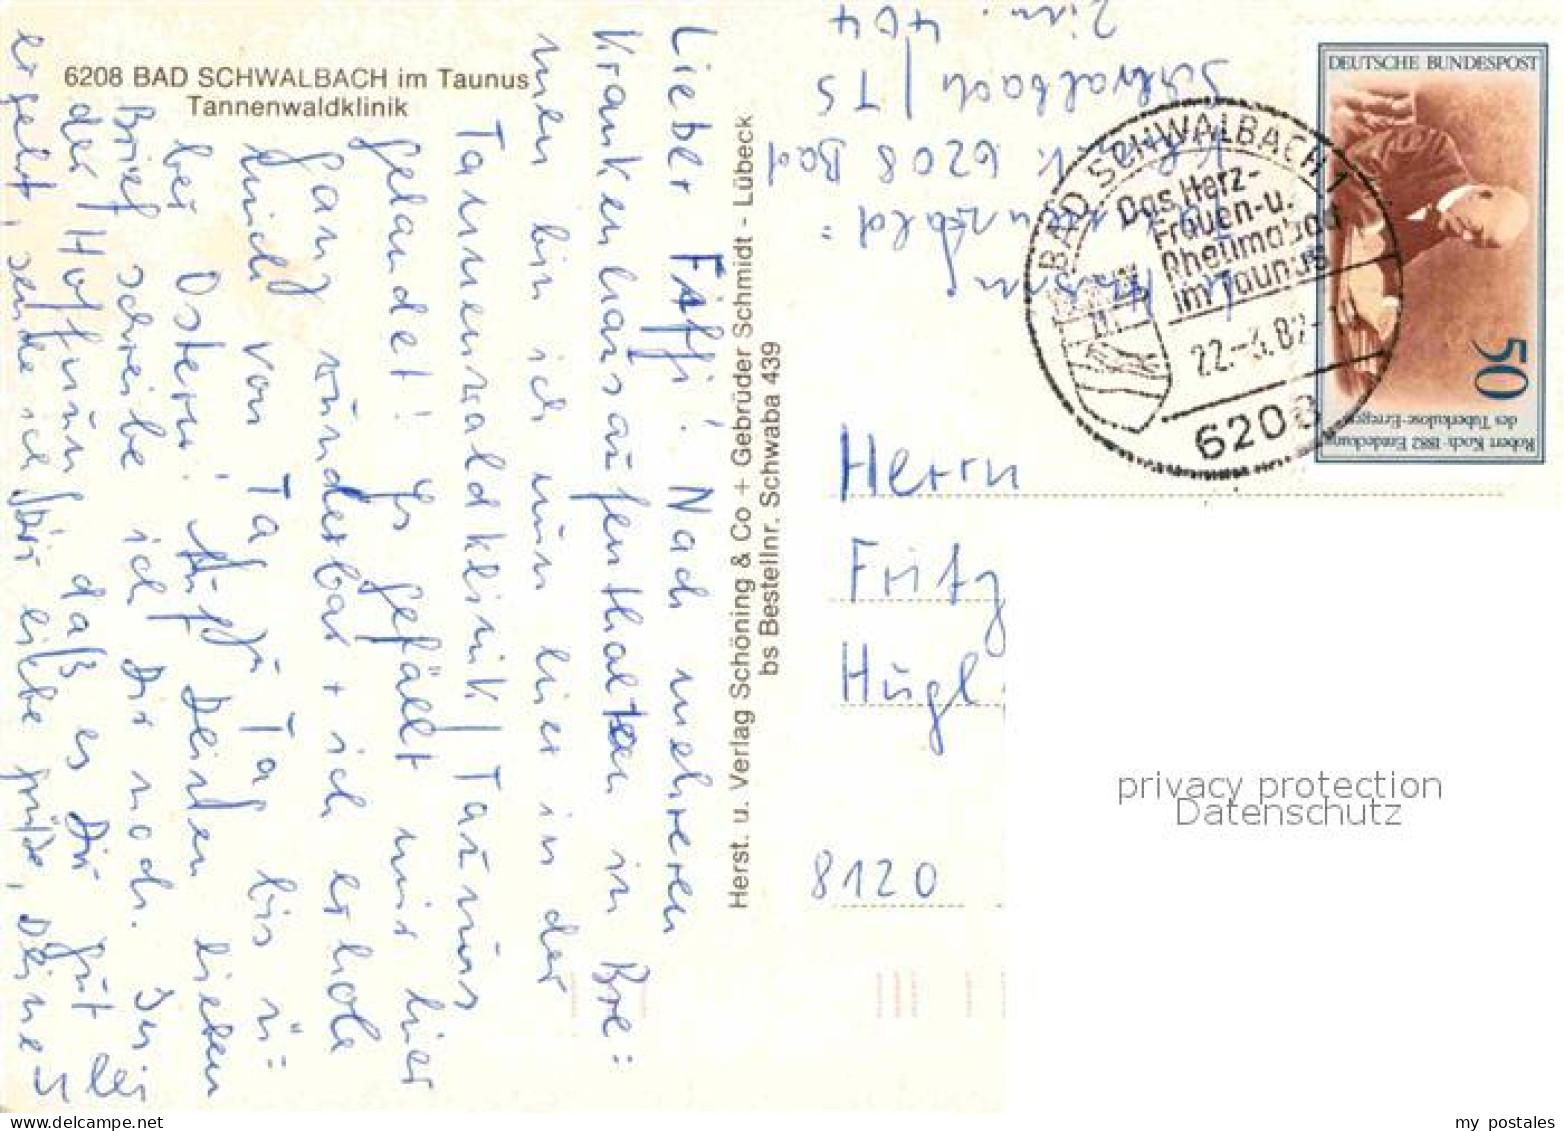 6208 BAD SCHWALBACH im Taunus
Tannenwaldklinik
Lieber Fiffi! Nach mehreren
Krankenhausaufenthalten in Bre=
men bin ich nun hier in der
Tannenwaldklinik/Taunus
gelandet! Es gefällt mir hier
ganz wunderbar + ich erhole
mich von Tag zu Tag bis ü=
ber Ostern! Deinen lieben
Brief schreibe ich Dir noch. In
der Hoffnung daß es Dir gut
ergeht, sende ich Dir liebe Grüße, Deine
Herst. u. Verlag Schöning & Co + Gebrüder Schmidt - Lübeck
bs Bestellnr. Schwaba 439
Tannenwald=
6208 Bad
Schwalbach/TS
Zim. 404
BAD SCHWALBACH 1
Das Herz-
Frauen-u.
Rheumabad
im Taunus
22.-3.82
6208
DEUTSCHE BUNDESPOST
50
Robert Koch · 1882 Entdeckung
des Tuberkulose-Erregers
Herrn
Fritz
Hügl
8120
privacy protection
Datenschutz
my postales